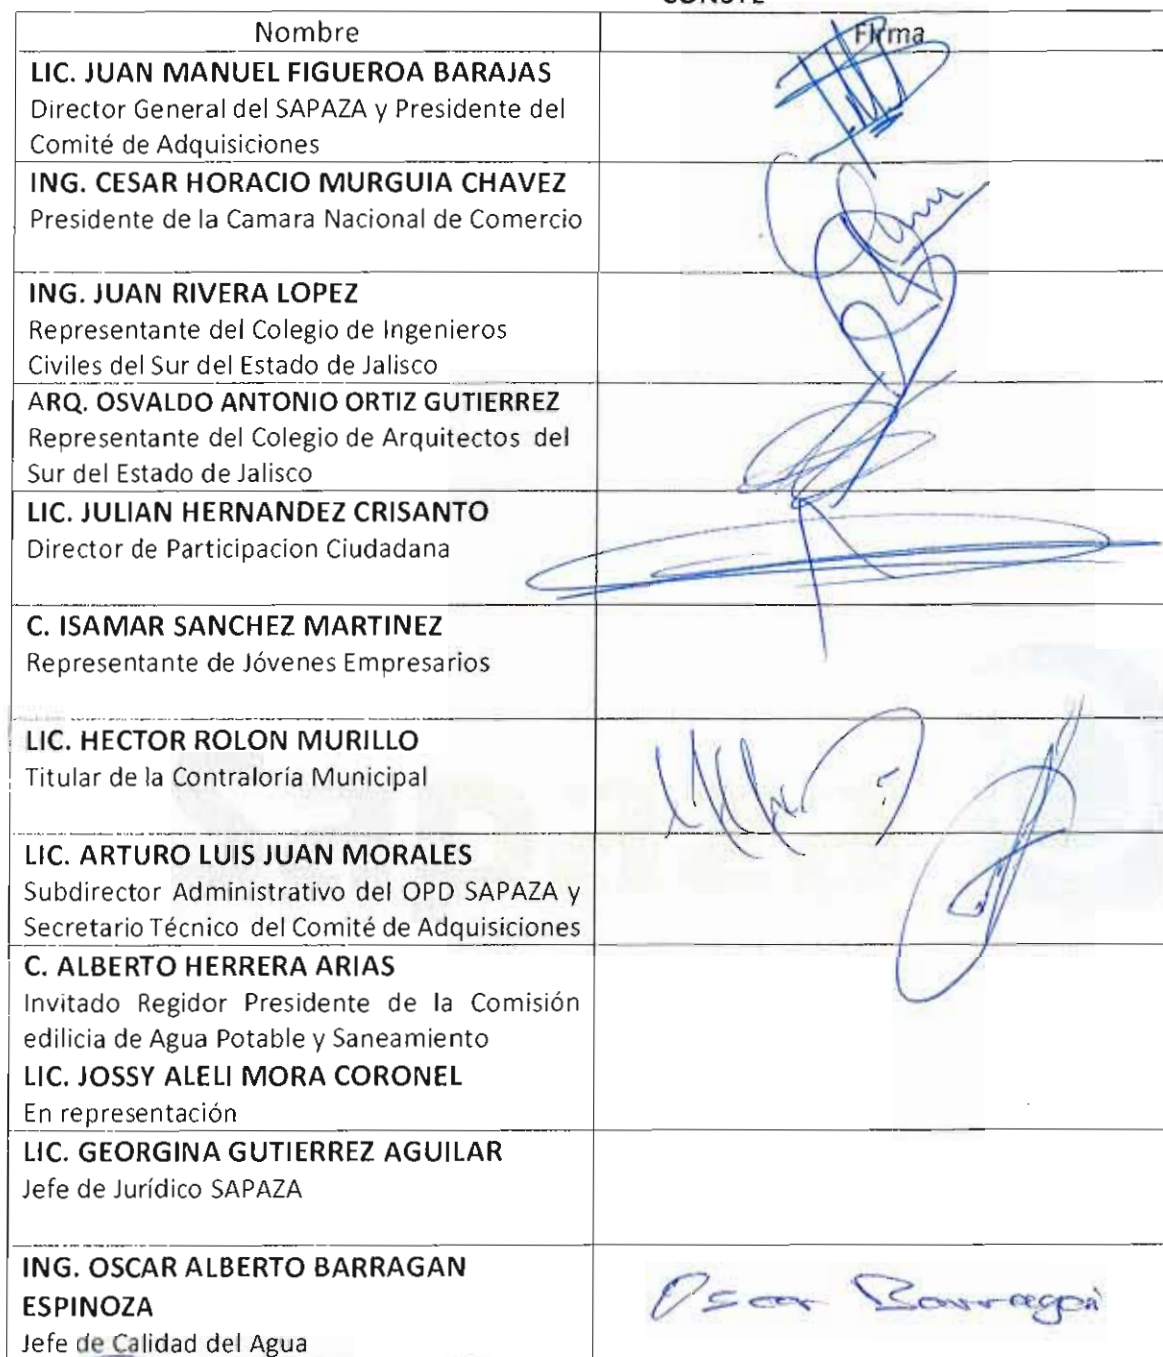 Nombre Firma
LIC. JUAN MANUEL FIGUEROA BARAJAS
Director General del SAPAZA y Presidente del
Comité de Adquisiciones
ING. CESAR HORACIO MURGUIA CHAVEZ
Presidente de la Camara Nacional de Comercio
ING. JUAN RIVERA LOPEZ
Representante del Colegio de Ingenieros
Civiles del Sur del Estado de Jalisco
ARQ. OSVALDO ANTONIO ORTIZ GUTIERREZ
Representante del Colegio de Arquitectos del
Sur del Estado de Jalisco
LIC. JULIAN HERNANDEZ CRISANTO
Director de Participacion Ciudadana
C. ISAMAR SANCHEZ MARTINEZ
Representante de Jóvenes Empresarios
LIC. HECTOR ROLON MURILLO
Titular de la Contraloría Municipal
LIC. ARTURO LUIS JUAN MORALES
Subdirector Administrativo del OPD SAPAZA y
Secretario Técnico del Comité de Adquisiciones
C. ALBERTO HERRERA ARIAS
Invitado Regidor Presidente de la Comisión
edilicia de Agua Potable y Saneamiento
LIC. JOSSY ALELI MORA CORONEL
En representación
LIC. GEORGINA GUTIERREZ AGUILAR
Jefe de Jurídico SAPAZA
ING. OSCAR ALBERTO BARRAGAN
ESPINOZA
Jefe de Calidad del Agua
Oscar Barragán